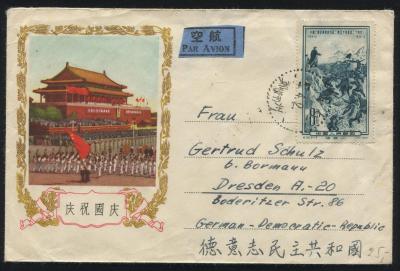 空航
PAR AVION
Frau
Gertrud Schulz
b. Bormann
Dresden A.-20
Boderitzer Str. 86
German-Democratic-Republic
德意志民主共和國
25.-
庆祝國庆
8